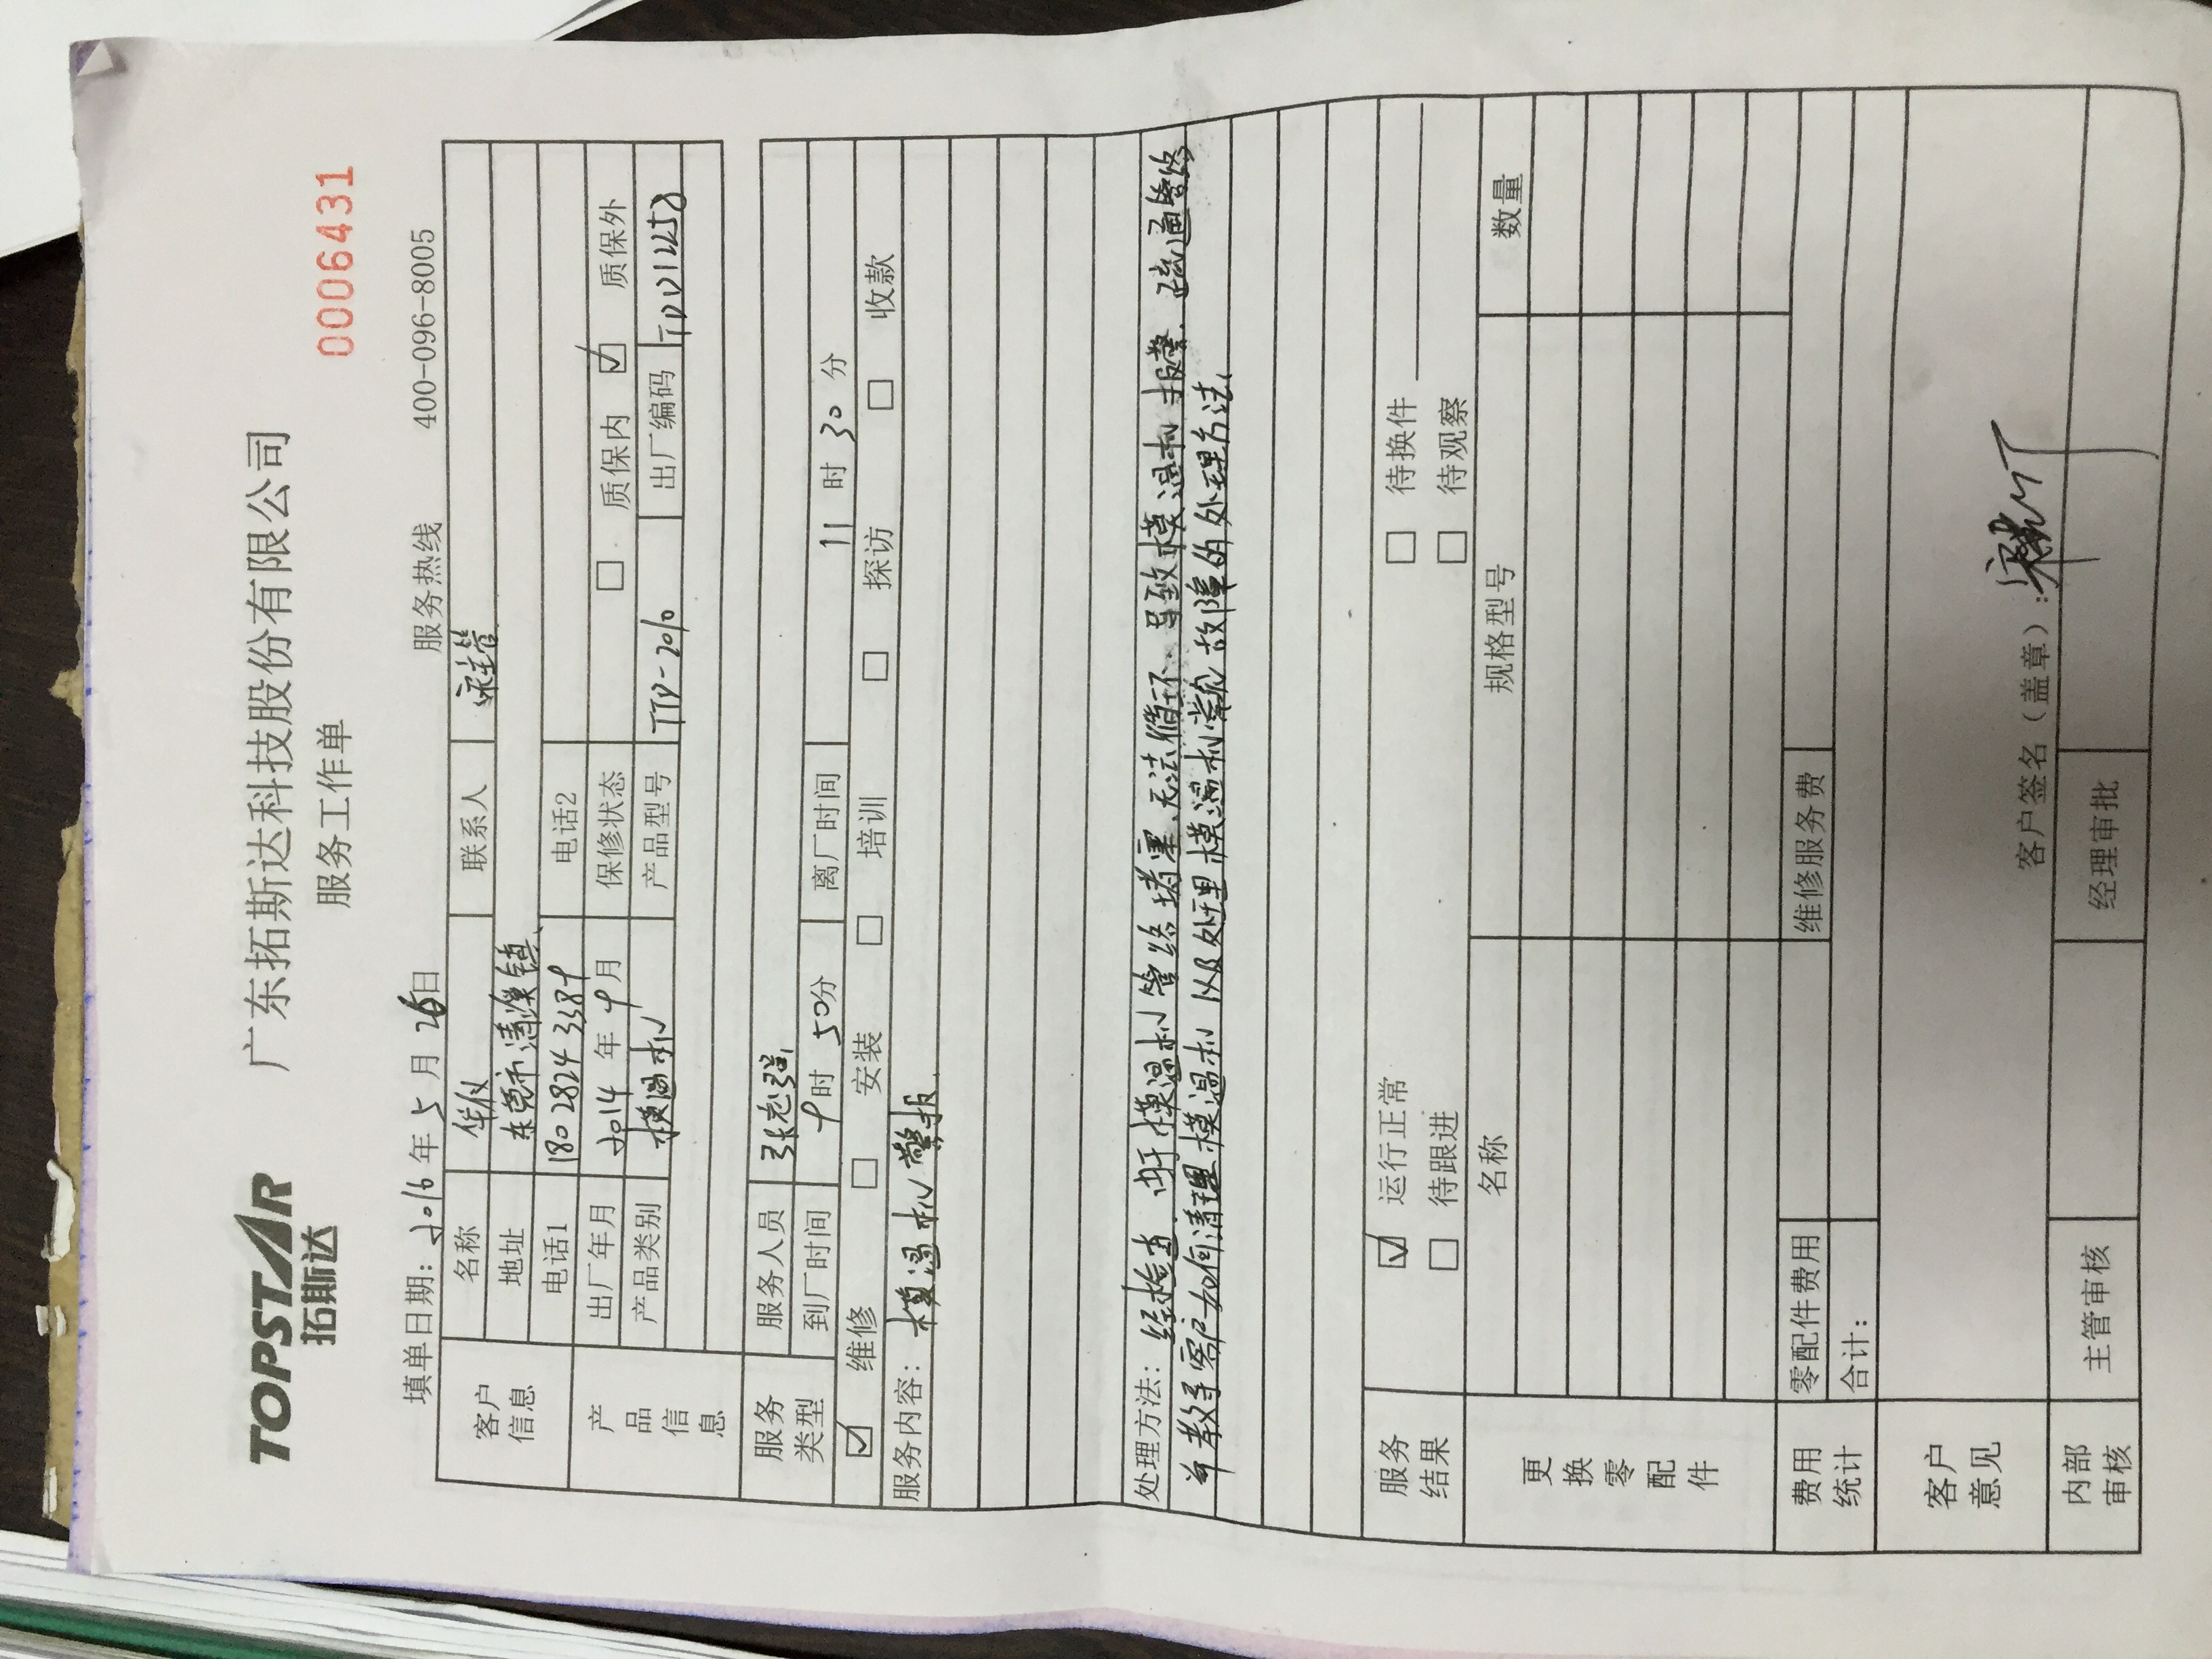 TOPSTAR
拓斯达
广东拓斯达科技股份有限公司
服务工作单
0006431
填单日期: 2016年5月26日 服务热线 400-096-8005
客户信息
名称 联系人
地址 东莞市清溪镇
电话1 180 2824 3389 电话2
产品信息
出厂年月 2014年9月 保修状态 □ 质保内 ☑ 质保外
产品类别 模温机 产品型号 TTD-2010 出厂编码
服务类型
服务人员
到厂时间 9时50分 离厂时间 11时30分
☑ 维修 □ 安装 □ 培训 □ 探访 □ 收款
服务内容: 模温机警报
处理方法: 经检查,由于模温机管路堵塞,无法循环,导致模温机报警.疏通管路
并教导客户如何清理模温机以及处理模温机常见故障的处理方法.
服务结果
☑ 运行正常 □ 待换件
□ 待跟进 □ 待观察
更换零配件
名称 规格型号 数量
费用统计
零配件费用 维修服务费
合计:
客户意见
客户签名(盖章):
内部审核
主管审核 经理审批